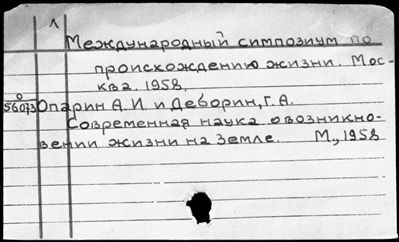 Л
Международный симпозиум по
происхождению жизни. Мос-
ква. 1958.
О
56073 Опарин А.И. и Деборин, Г.А.
Современная наука о возникно-
вении жизни на Земле. М., 1958